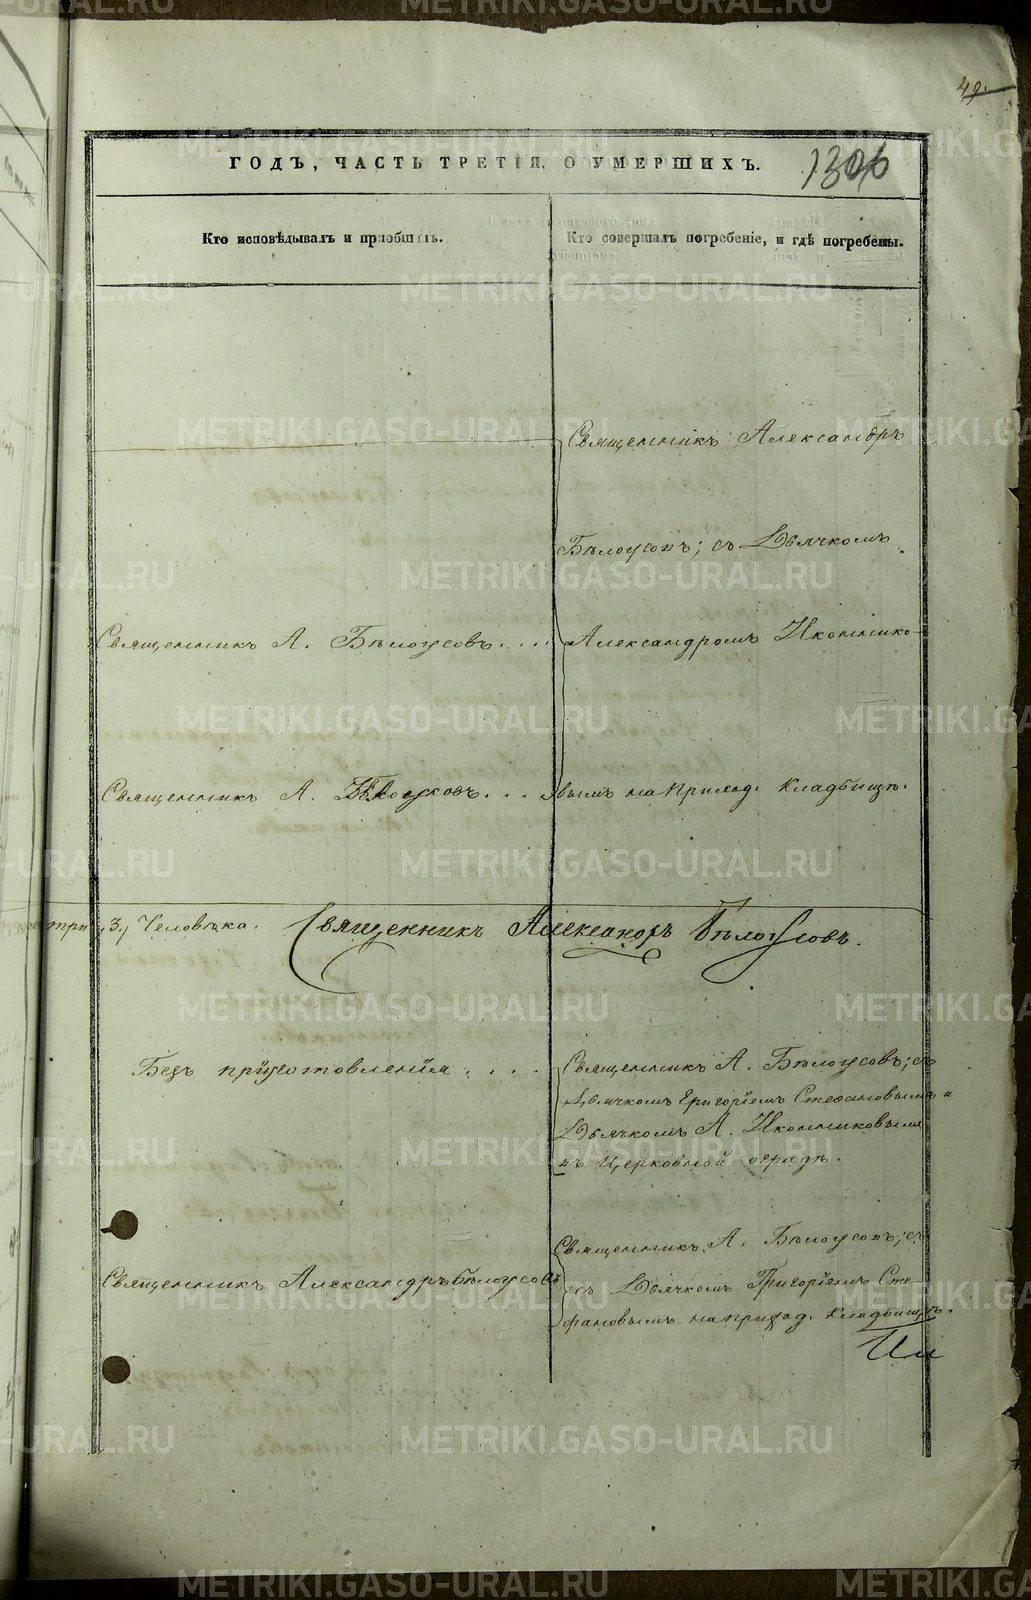 49.
ГОДЪ, ЧАСТЬ ТРЕТІЯ, О УМЕРШИХЪ.
1306
Кто исповѣдывалъ и пріобщилъ.
Кто совершалъ погребеніе, и гдѣ погребены.
Священникъ Александръ
Бѣлоусовъ; съ Дьячкомъ
Священникъ А. Бѣлоусовъ....
Александромъ Иконнико-
Священникъ А. Бѣлоусовъ...
вымъ на приход. кладбищѣ.
три, 3, Человѣка. Священникъ Александръ Бѣлоусовъ.
Безъ приготовленія....
Священникъ А. Бѣлоусовъ; съ
Дьячкомъ Григоріемъ Стефановымъ и
Дьячкомъ А. Иконниковымъ
въ Церковной оградѣ.
Священникъ Александръ Бѣлоусовъ
Священникъ А. Бѣлоусовъ; съ
съ Дьячкомъ Григоріемъ Сте-
фановымъ на приход. кладбищѣ.
METRIKI.GASO-URAL.RU